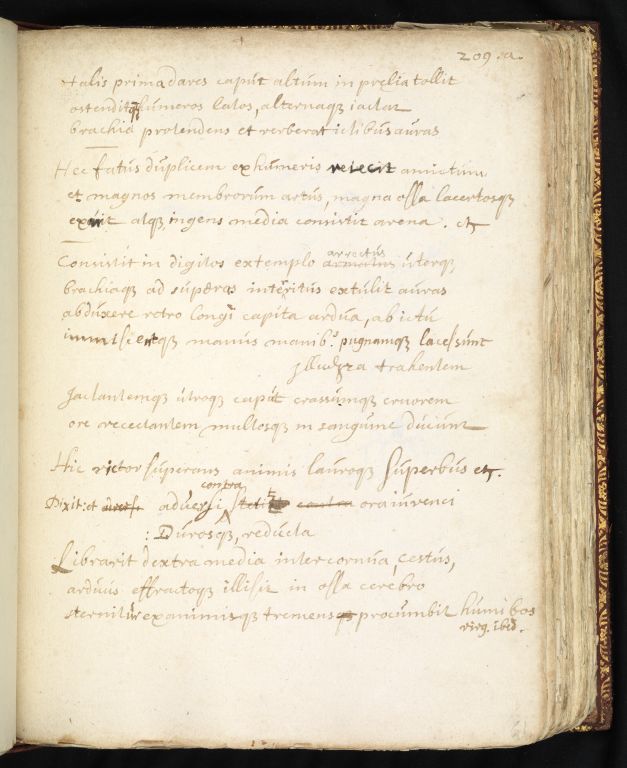 209.a.
talis prima dares caput altum in prelia tollit
ostenditq; humeros latos, alternaq; iactat
brachia protendens et verberat ictibus auras
Hec fatus duplicem ex humeris reiecit amictum
et magnos membrorum artus, magna ossa lacertosq;
exuit atq; ingens media consistit arena. etc
Consistit in digitos extemplo arrectus uterq;
brachiaq; ad superas interitus extulit auras
abduxere retro longi capita ardua, ab ictu
immiscentq; manus manib.s pugnamq; lacessunt
genua trahentem
Jactantemq; utroq; caput crassumq; cruorem
ore reiectantem multosq; in sanguine ducunt
Hic victor superans animis tauroq; superbus etc.
contra
Dixit: et adversi adversi stetit contra ora iuvenci
: Durosq; reducta
Librarit dextra media inter cornua cestus,
arduus effractoq; illisit in ossa cerebro
sternitur exanimisq; tremens procumbit humi bos
virg. ibid.